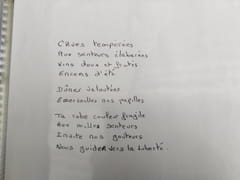 Caves temporées
Aux senteurs élaborées
Vins doux et fruités
Encens d'été
Dîner veloutées
Emerveilles nos papilles
Ta robe couleur fragile
Aux milles senteurs
Invite nos goûteurs
Nous guider vers la liberté.